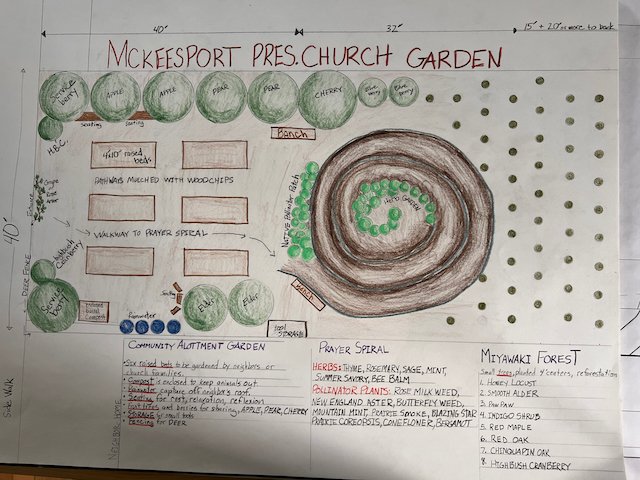 40'
32'
15' + 20' or more to back
McKeesport Pres. Church Garden
Service berry
Apple
Apple
Pear
Pear
Cherry
Blue berry
Blue berry
seating
seating
H.B.C.
Bench
4x10' raised beds
Pathways mulched with woodchips
Native Pollinator Patch
Herb Garden
Walkway to Prayer Spiral
40'
Deer Fence
Highbush Cranberry
Service berry
Compost
Rainwater
Seating
Elder
Elder
Bench
tool storage
Side Walk
Neighbor Home
Community Alottment Garden
Six raised beds to be gardened by neighbors or
church families.
Compost is enclosed to keep animals out.
Rainwater capture off neighbors roof.
Seating for rest, relaxation, reflection
fruit trees and berries for sharing, Apple, Pear, Cherry
Storage for small tools
Fencing for Deer
Prayer Spiral
Herbs: Thyme, Rosemary, Sage, Mint,
Summer Savory, Bee Balm
Pollinator Plants: Rose Milk Weed,
New England Aster, Butterfly Weed,
Mountain Mint, Prairie Smoke, Blazing Star
Prairie Coreopsis, Coneflower, Bergamot
Miyawaki Forest
Small trees, planted 4' centers, reforestation
1. Honey Locust
2. Smooth Alder
3. Paw Paw
4. Indigo Shrub
5. Red Maple
6. Red Oak
7. Chinquapin Oak
8. Highbush Cranberry